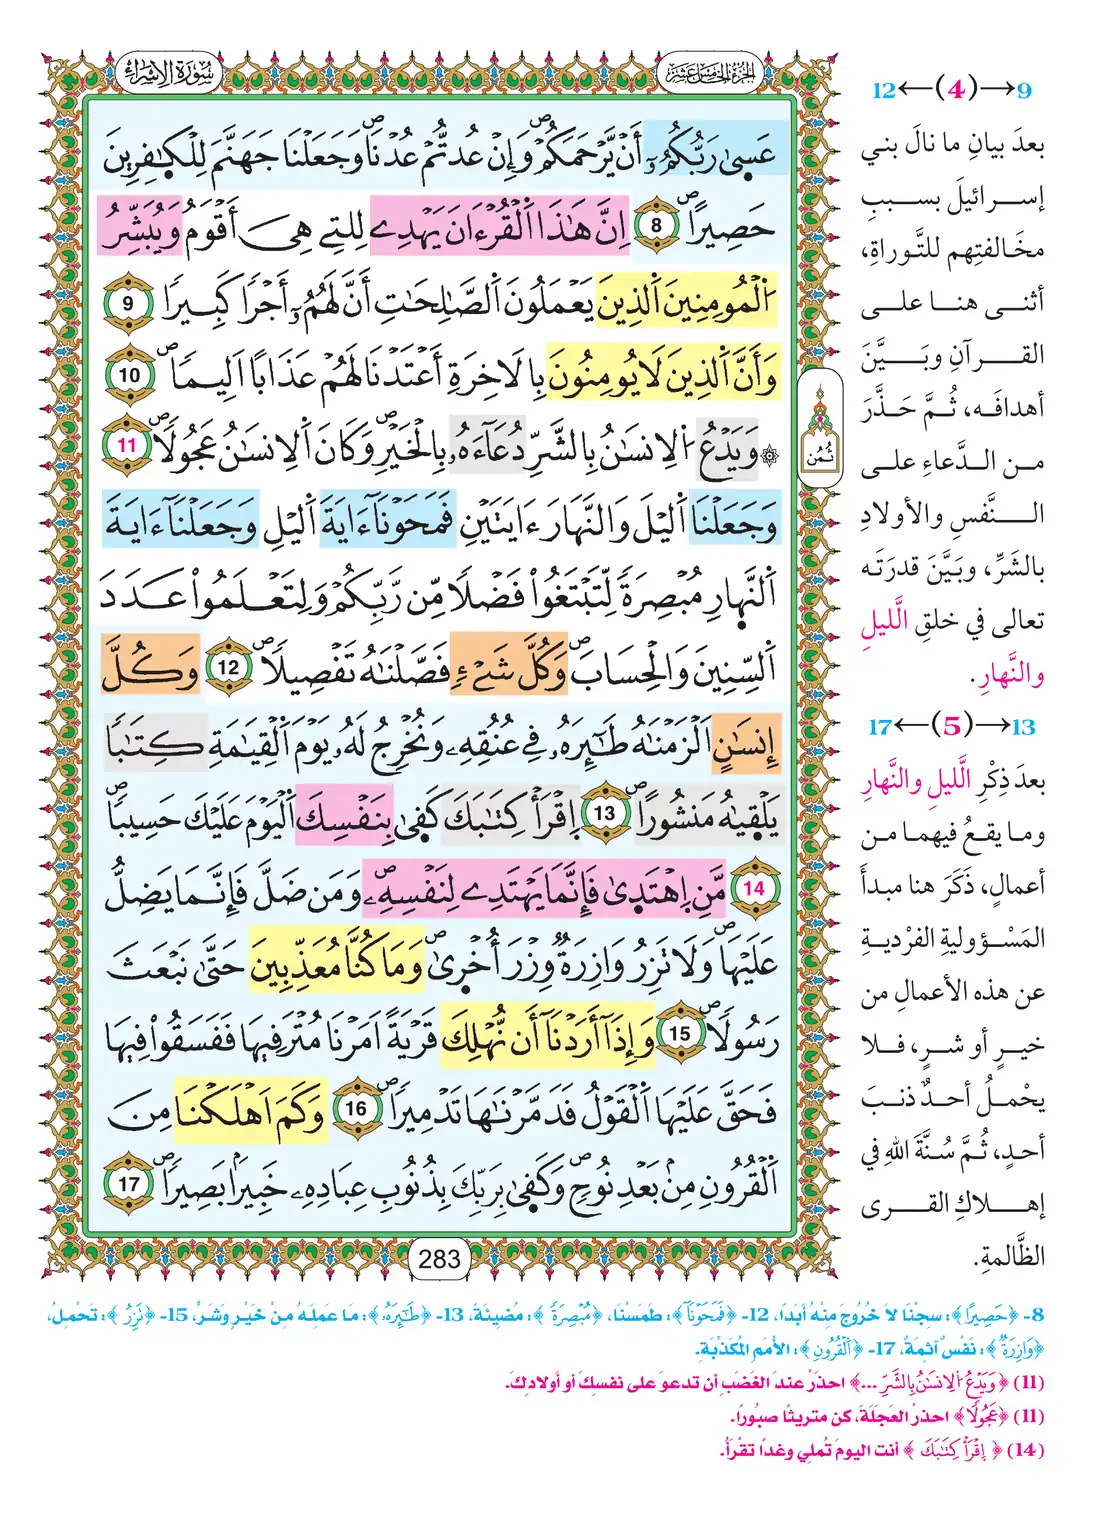 الجزء الخامس عشر
سورة الإسراء
عَسىٰ رَبُّكُمُۥٓ أَنْ يَّرْحَمَكُمْۖ وَإِنْ عُدتُّمْ عُدْنَاۖ وَجَعَلْنَا جَهَنَّمَ لِلْكٰ۪فِرِينَ
حَصِيراًۖ 8 اِنَّ هَٰذَا اَ۬لْقُرْءَانَ يَهْدِے لِلتِے هِيَ أَقْوَمُ وَيُبَشِّرُ
اُ۬لْمُومِنِينَ اَ۬لذِينَ يَعْمَلُونَ اَ۬لصَّٰلِحَٰتِ أَنَّ لَهُمُۥٓ أَجْراٗ كَبِيراٗ 9
وَأَنَّ اَ۬لذِينَ لَا يُومِنُونَ بِالَاخِرَةِ أَعْتَدْنَا لَهُمْ عَذَاباً اَلِيماٗۖ 10
۞ وَيَدْعُ اُ۬لِانسَٰنُ بِالشَّرِّ دُعَآءَهُۥ بِالْخَيْرِۖ وَكَانَ اَ۬لِانسَٰنُ عَجُولاٗۖ 11
وَجَعَلْنَا اَ۬ليْلَ وَالنَّهَارَ ءَايَتَيْنِ فَمَحَوْنَآ ءَايَةَ اَ۬ليْلِ وَجَعَلْنَآ ءَايَةَ
اَ۬لنَّهَارِ مُبْصِرَةٗ لِّتَبْتَغُواْ فَضْلاٗ مِّن رَّبِّكُمْ وَلِتَعْلَمُواْ عَدَدَ
اَ۬لسِّنِينَ وَالْحِسَابَۖ وَكُلَّ شَےْءٖ فَصَّلْنَٰهُ تَفْصِيلاٗۖ 12 وَكُلَّ
إِنسَٰنٍ اَلْزَمْنَٰهُ طَٰٓئِرَهُۥ فِے عُنُقِهِۦ وَنُخْرِجُ لَهُۥ يَوْمَ اَ۬لْقِيَٰمَةِ كِتَٰباٗ
يَلْقٜيٰهُ مَنشُوراًۖ 13 اِ۪قْرَأْ كِتَٰبَكَ كَفىٰ بِنَفْسِكَ اَ۬لْيَوْمَ عَلَيْكَ حَسِيباٗۖ
14 مَّنِ اِ۪هْتَدىٰ فَإِنَّمَا يَهْتَدِے لِنَفْسِهِۦۖ وَمَن ضَلَّ فَإِنَّمَا يَضِلُّ
عَلَيْهَاۖ وَلَا تَزِرُ وَازِرَةٞ وِزْرَ أُخْرىٰۖ وَمَا كُنَّا مُعَذِّبِينَ حَتَّىٰ نَبْعَثَ
رَسُولاٗۖ 15 وَإِذَآ أَرَدْنَآ أَن نُّهْلِكَ قَرْيَةً اَمَرْنَا مُتْرَفِيهَا فَفَسَقُواْ فِيهَا
فَحَقَّ عَلَيْهَا اَ۬لْقَوْلُ فَدَمَّرْنَٰهَا تَدْمِيراٗۖ 16 وَكَمَ اَهْلَكْنَا مِنَ
اَ۬لْقُرُونِ مِنۢ بَعْدِ نُوحٖۖ وَكَفىٰ بِرَبِّكَ بِذُنُوبِ عِبَادِهِۦ خَبِيراَۢ بَصِيراٗۖ 17
ثُمُن
283
9→(4)←12
بعدَ بيانِ ما نالَ بني
إسرائيلَ بسببِ
مخالفتِهم للتَّوراةِ،
أثنى هنا على
القرآنِ وبَيَّنَ
أهدافَه، ثُمَّ حَذَّرَ
من الدَّعاءِ على
النَّفسِ والأولادِ
بالشَرِّ، وبَيَّنَ قدرَتَه
تعالى في خلقِ الَّليلِ
والنَّهارِ.
13→(5)←17
بعدَ ذِكْرِ الَّليلِ والنَّهارِ
وما يقعُ فيهما من
أعمالٍ، ذَكَرَ هنا مبدأَ
المَسْؤوليةِ الفرْديةِ
عن هذه الأعمالِ من
خيرٍ أو شرٍ، فلا
يحْملُ أحدٌ ذنبَ
أحدٍ، ثُمَّ سُنَّةَ اللهِ في
إهلاكِ القرى
الظَّالمةِ.
8- ﴿حَصِيراً﴾: سِجْنًا لا خُرُوجَ مِنْهُ أبَداً، 12- ﴿فَمَحَوْنَآ﴾: طَمَسْنَا، ﴿مُبْصِرَةٗ﴾: مُضِيئَةً، 13- ﴿طَٰٓئِرَهُۥ﴾: مَا عَمِلَهُ مِنْ خَيْرٍ وَشَرٍّ، 15- ﴿تَزِرُ﴾: تَحْمِلُ،
﴿وَازِرَةٞ﴾: نَفْسٌ آثِمَةٌ، 17- ﴿اَ۬لْقُرُونِ﴾: الأُمَمِ المُكَذِّبَةِ.
(11) ﴿وَيَدْعُ اُ۬لِانسَٰنُ بِالشَّرِّ ...﴾ احذَرْ عندَ الغَضَبِ أن تدعوَ على نفسِكَ أو أولادِكَ.
(11) ﴿عَجُولاٗ﴾ احذرْ العَجَلَةَ، كن متريثًا صبُورًا.
(14) ﴿اِ۪قْرَأْ كِتَٰبَكَ﴾ أنت اليومَ تُملي وغدًا تقْرَأُ.